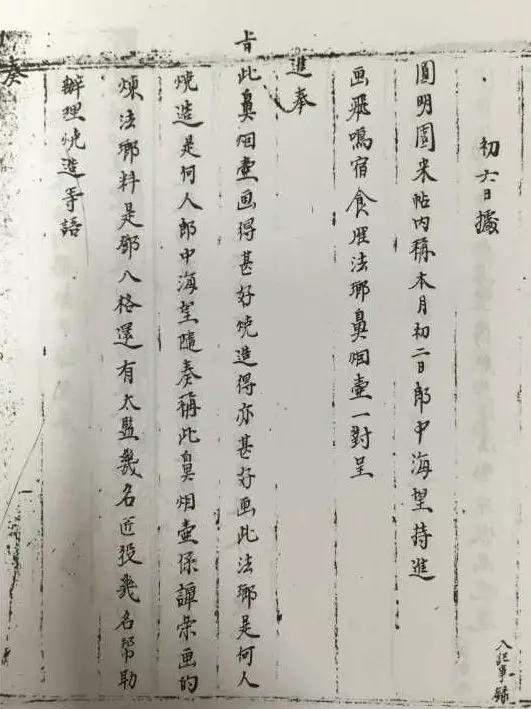 初六日據
圓明園来帖内稱本月初二日郎中海望持進
画飛鳴宿食雁法瑯鼻烟壷一對呈
進奉
旨此鼻烟壷画得甚好燒造得亦甚好画此法瑯是何人
燒造是何人郎中海望隨奏稱此鼻烟壷係譚荣画的
煉法瑯料是鄧八格還有太監幾名匠役幾名帮助
辦理燒造等語
奏
入記事録